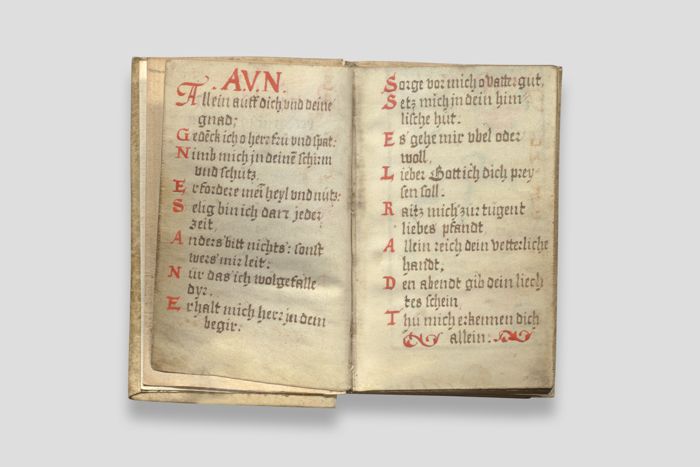 A.V.N.
Allein auff dich vnd deine
gnad:
Gedēck ich o herr fru vnd spat:
Nimb mich in deinē schirm
vnd schutz
Erfordere mei heyl vnd nutz:
Selig bin ich darr jeder
zeit,
Anders bitt nichts: sonst
wers mir leit:
Nur das ich wolgefalle
dyr,
Erhalt mich herr in dem
begir:
Sorge vor mich o vatter gut,
Setz mich in dein him
lische hut:
Es gehe mir vbel oder
woll,
Lieber Gott ich dich prey
sen soll:
Raitz mich zur tugent
liebes pfandt
Allein reich dein vetterliche
handt,
Den abendt gib dein liech
tes schein
Thu mich erkennen dich
allein: